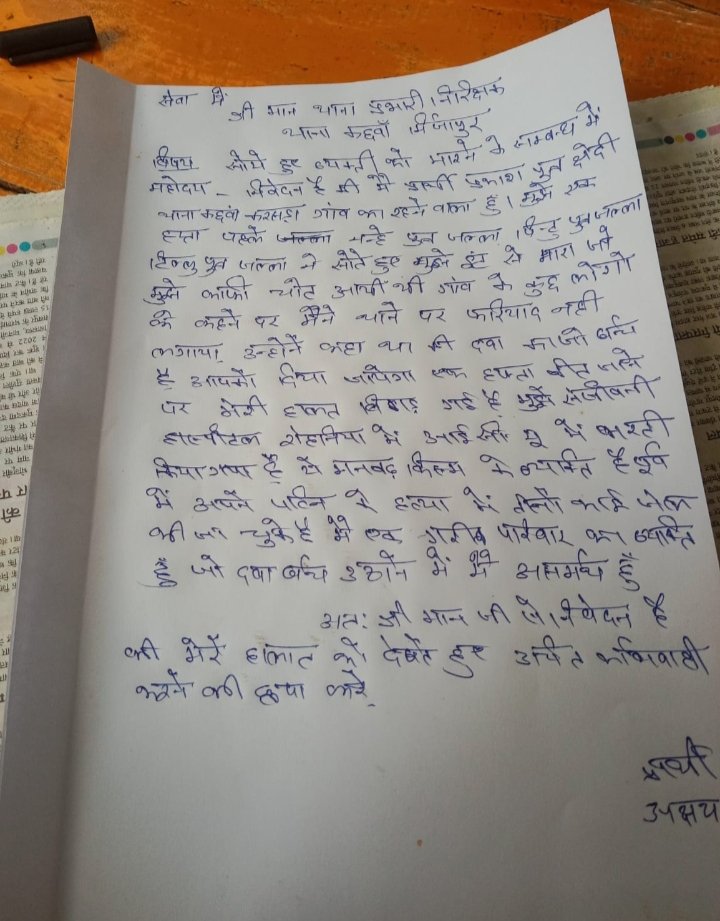 सेवा में
श्री मान थाना प्रभारी निरिक्षक
थाना कछवाँ मिर्जापुर
विषय सोये हुए व्यक्ती को मारने के सम्बन्ध में
महोदय - निवेदन है की मै प्रार्थी प्रकाश पुत्र छेदी
थाना कछवां करसड़ा गांव का रहने वाला हुं। मुझे एक
हप्ता पहले नन्हे पुत्र जल्ला पुत्र जल्ला
पुत्र जल्ला ने सोते हुए मुझे ईट से मारा जो
मुझे काफी चोट आयी थी गांव के कुछ लोगो
के कहने पर मैने थाने पर फरियाद नही
लगाया उन्होने कहा था की दवा का जो खर्च
है आपको दिया जायेगा एक हप्ता बीत जाने
पर मेरी हालत बिगड़ गई है मुझे संजीवनी
हास्पीटल रोहनिया में आई सी यू में भरती
किया गया है ये मनबढ़ किस्म के व्यक्ति है पूर्व
में अपने पत्नि के हत्या में दोनों भाई जेल
भी जा चुके है मै एक गरीब परिवार का व्यक्ति
हूँ जो दवा खर्च उठाने में भी असमर्थ हूँ
अत: श्री मान जी से निवेदन है
की मेरे हालात को देखते हुए उचित कार्यवाही
करने की कृपा करे
प्रार्थी
अक्षय